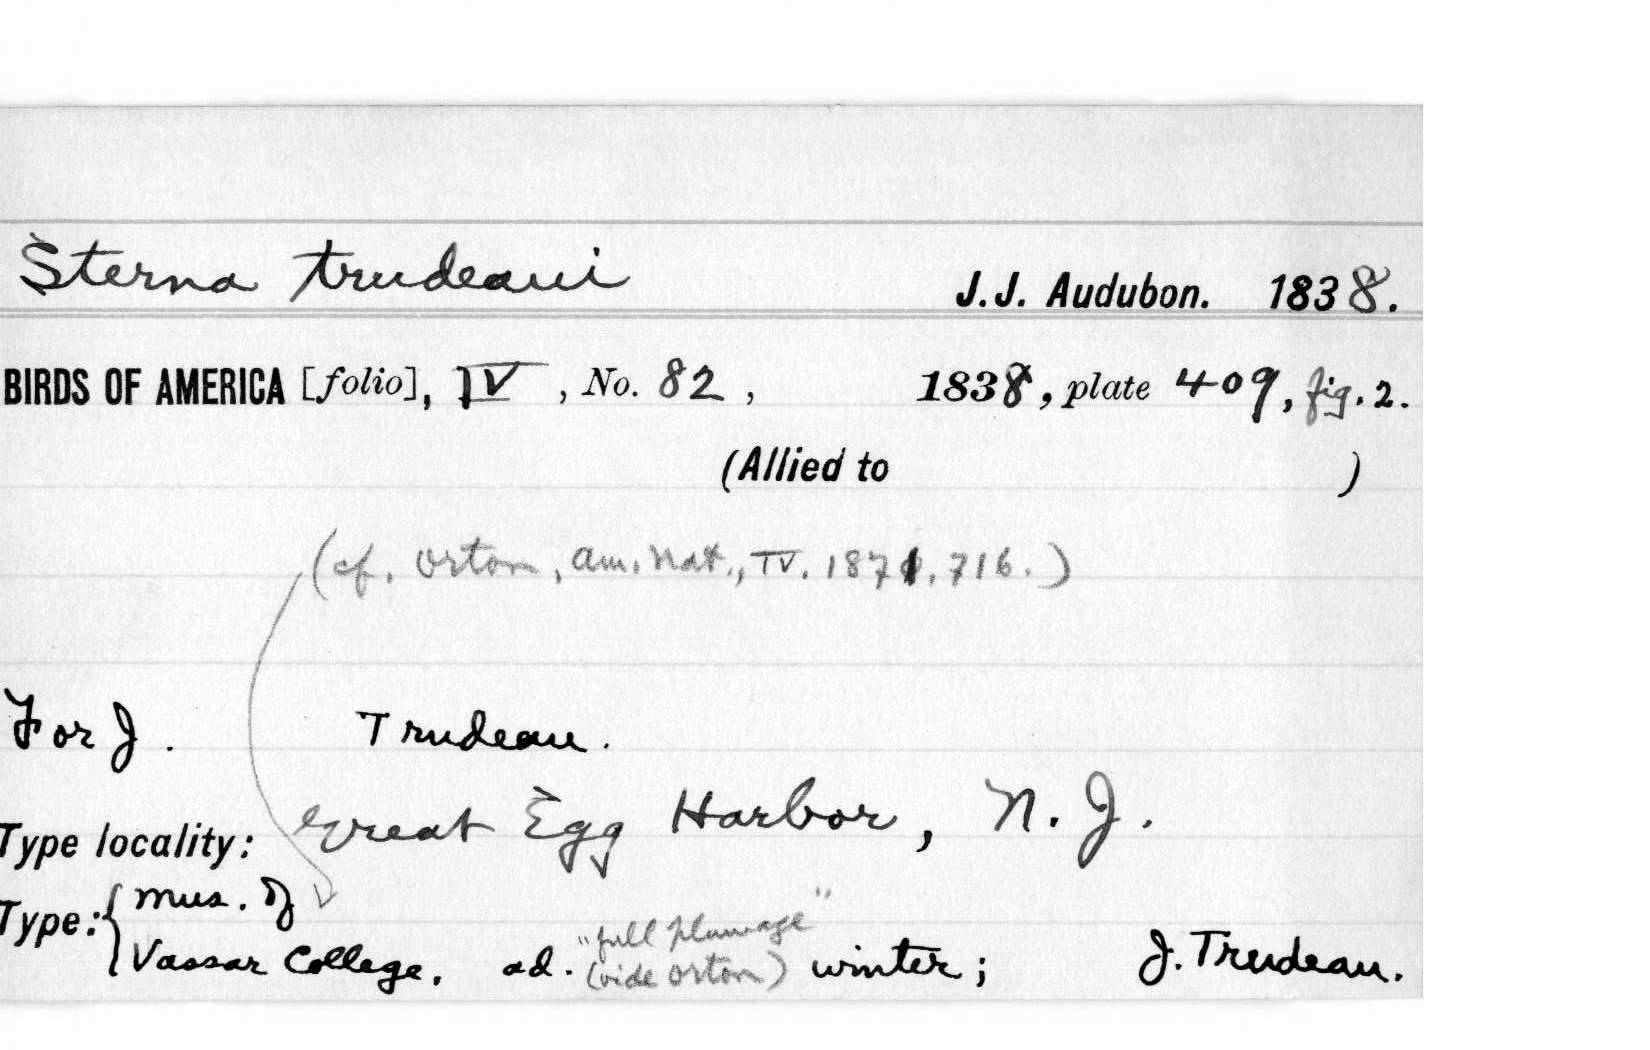 Sterna trudeaui
J. J. Audubon. 1838.
BIRDS OF AMERICA [folio], IV, No. 82, 1838, plate 409, fig. 2.
(Allied to )
(cf. Orton, Am. Nat., IV. 1871, 716.)
For J. Trudeau.
Type locality: Great Egg Harbor, N. J.
Type: { Mus. of
Vassar College. ad. "full plumage" (vide Orton) winter; J. Trudeau.